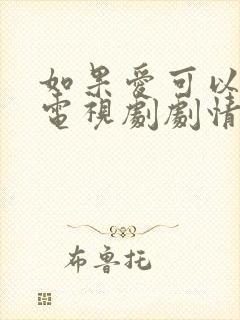 如果愛可以
電視劇劇情
布魯托